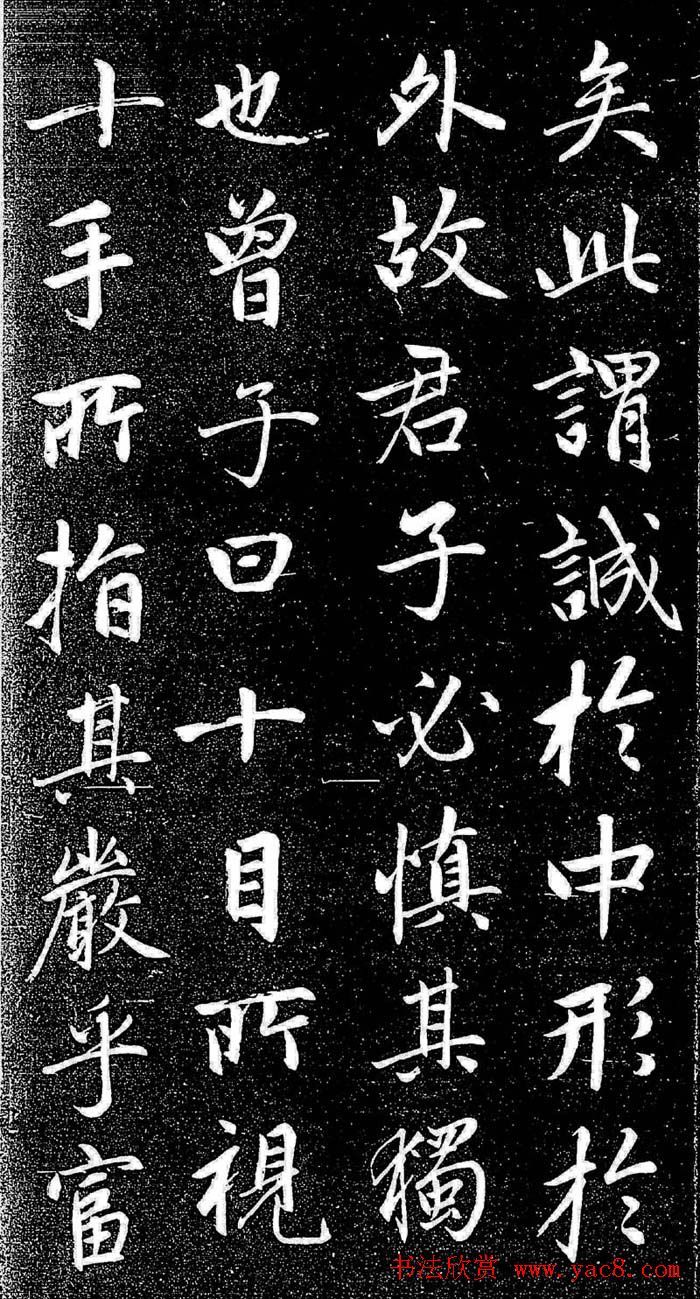 矣此謂誠於中形於
外故君子必慎其獨
也曾子曰十目所視
十手所指其嚴乎富
书法欣赏 www.yac8.com